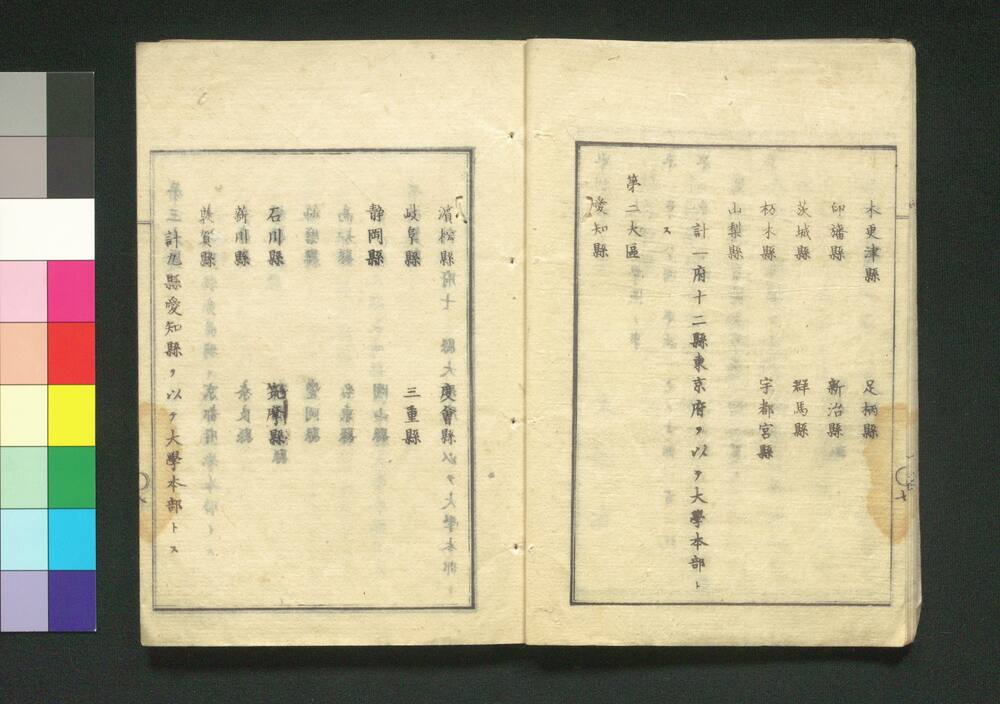 木更津縣 足柄縣
印旛縣 新治縣
茨城縣 群馬縣
栃木縣 宇都宮縣
山梨縣
計一府十二縣東京府ヲ以テ大學本部ト
ス
第二大區
愛知縣
濱松縣 度會縣
岐阜縣 三重縣
静岡縣
石川縣 筑摩縣
新川縣
敦賀縣
計九縣愛知縣ヲ以テ大學本部トス